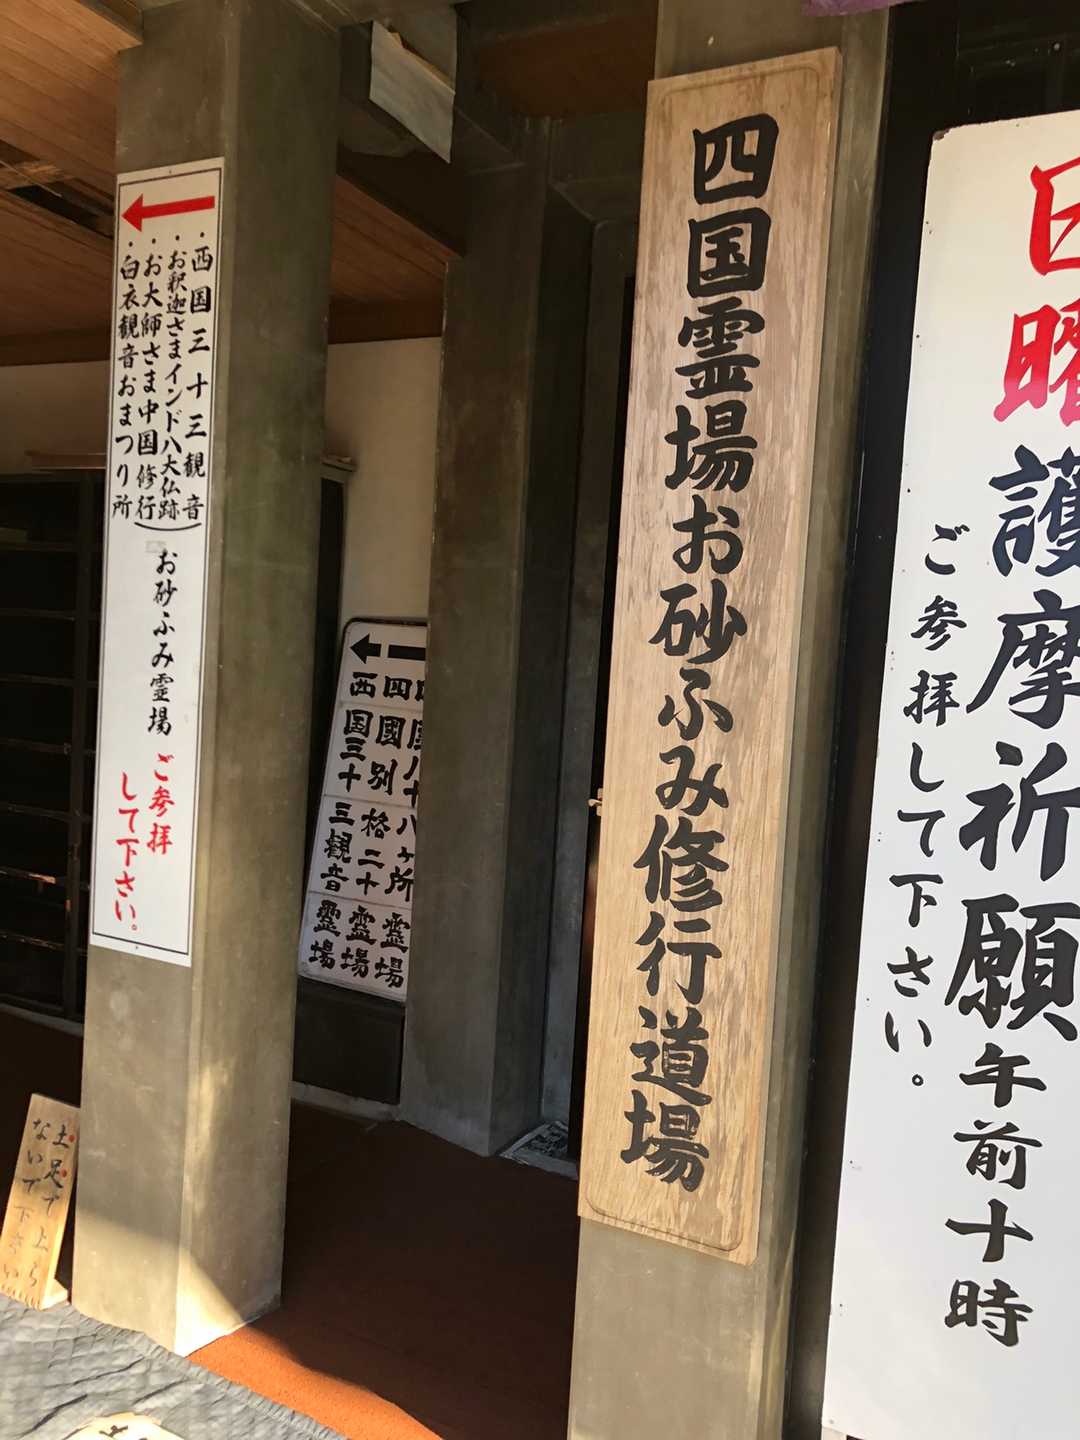 日曜
護摩祈願午前十時
ご参拝して下さい。
四国霊場お砂ふみ修行道場
八十八ヶ所霊場
四國別格二十霊場
西国三十三観音霊場
・西国三十三観音
・お釈迦さまインド八大仏跡
・お大師さま中国修行
・白衣観音おまつり所
お砂ふみ霊場
ご参拝
して下さい。
土足で上ら
ないで下さい